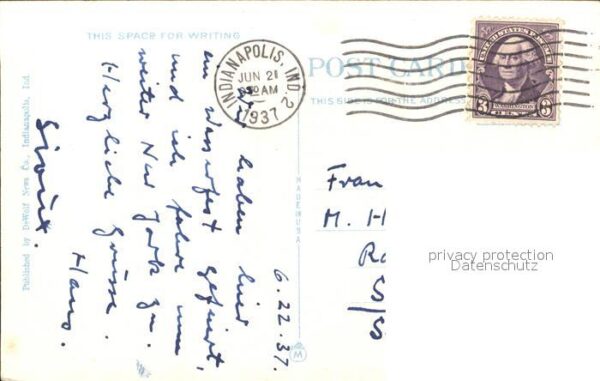 THIS SPACE FOR WRITING
6.22.37.
Wir haben hier
ein Wasserfest gefeiert,
und ich fahre nun
weiter New York zu.
Herzliche Grüsse.
Hans.
Published by DeWolf News Co., Indianapolis, Ind.
MADE IN USA
M
INDIANAPOLIS, IND. 2
JUN 21
AM
1937
POST CARD
THIS SIDE IS FOR THE ADDRESS
UNITED STATES POSTAGE
3 WASHINGTON 3
Frau
M. H
privacy protection
Datenschutz